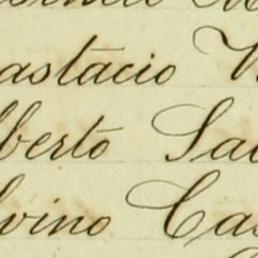 astacio V
lberto Sa
lvino Cas